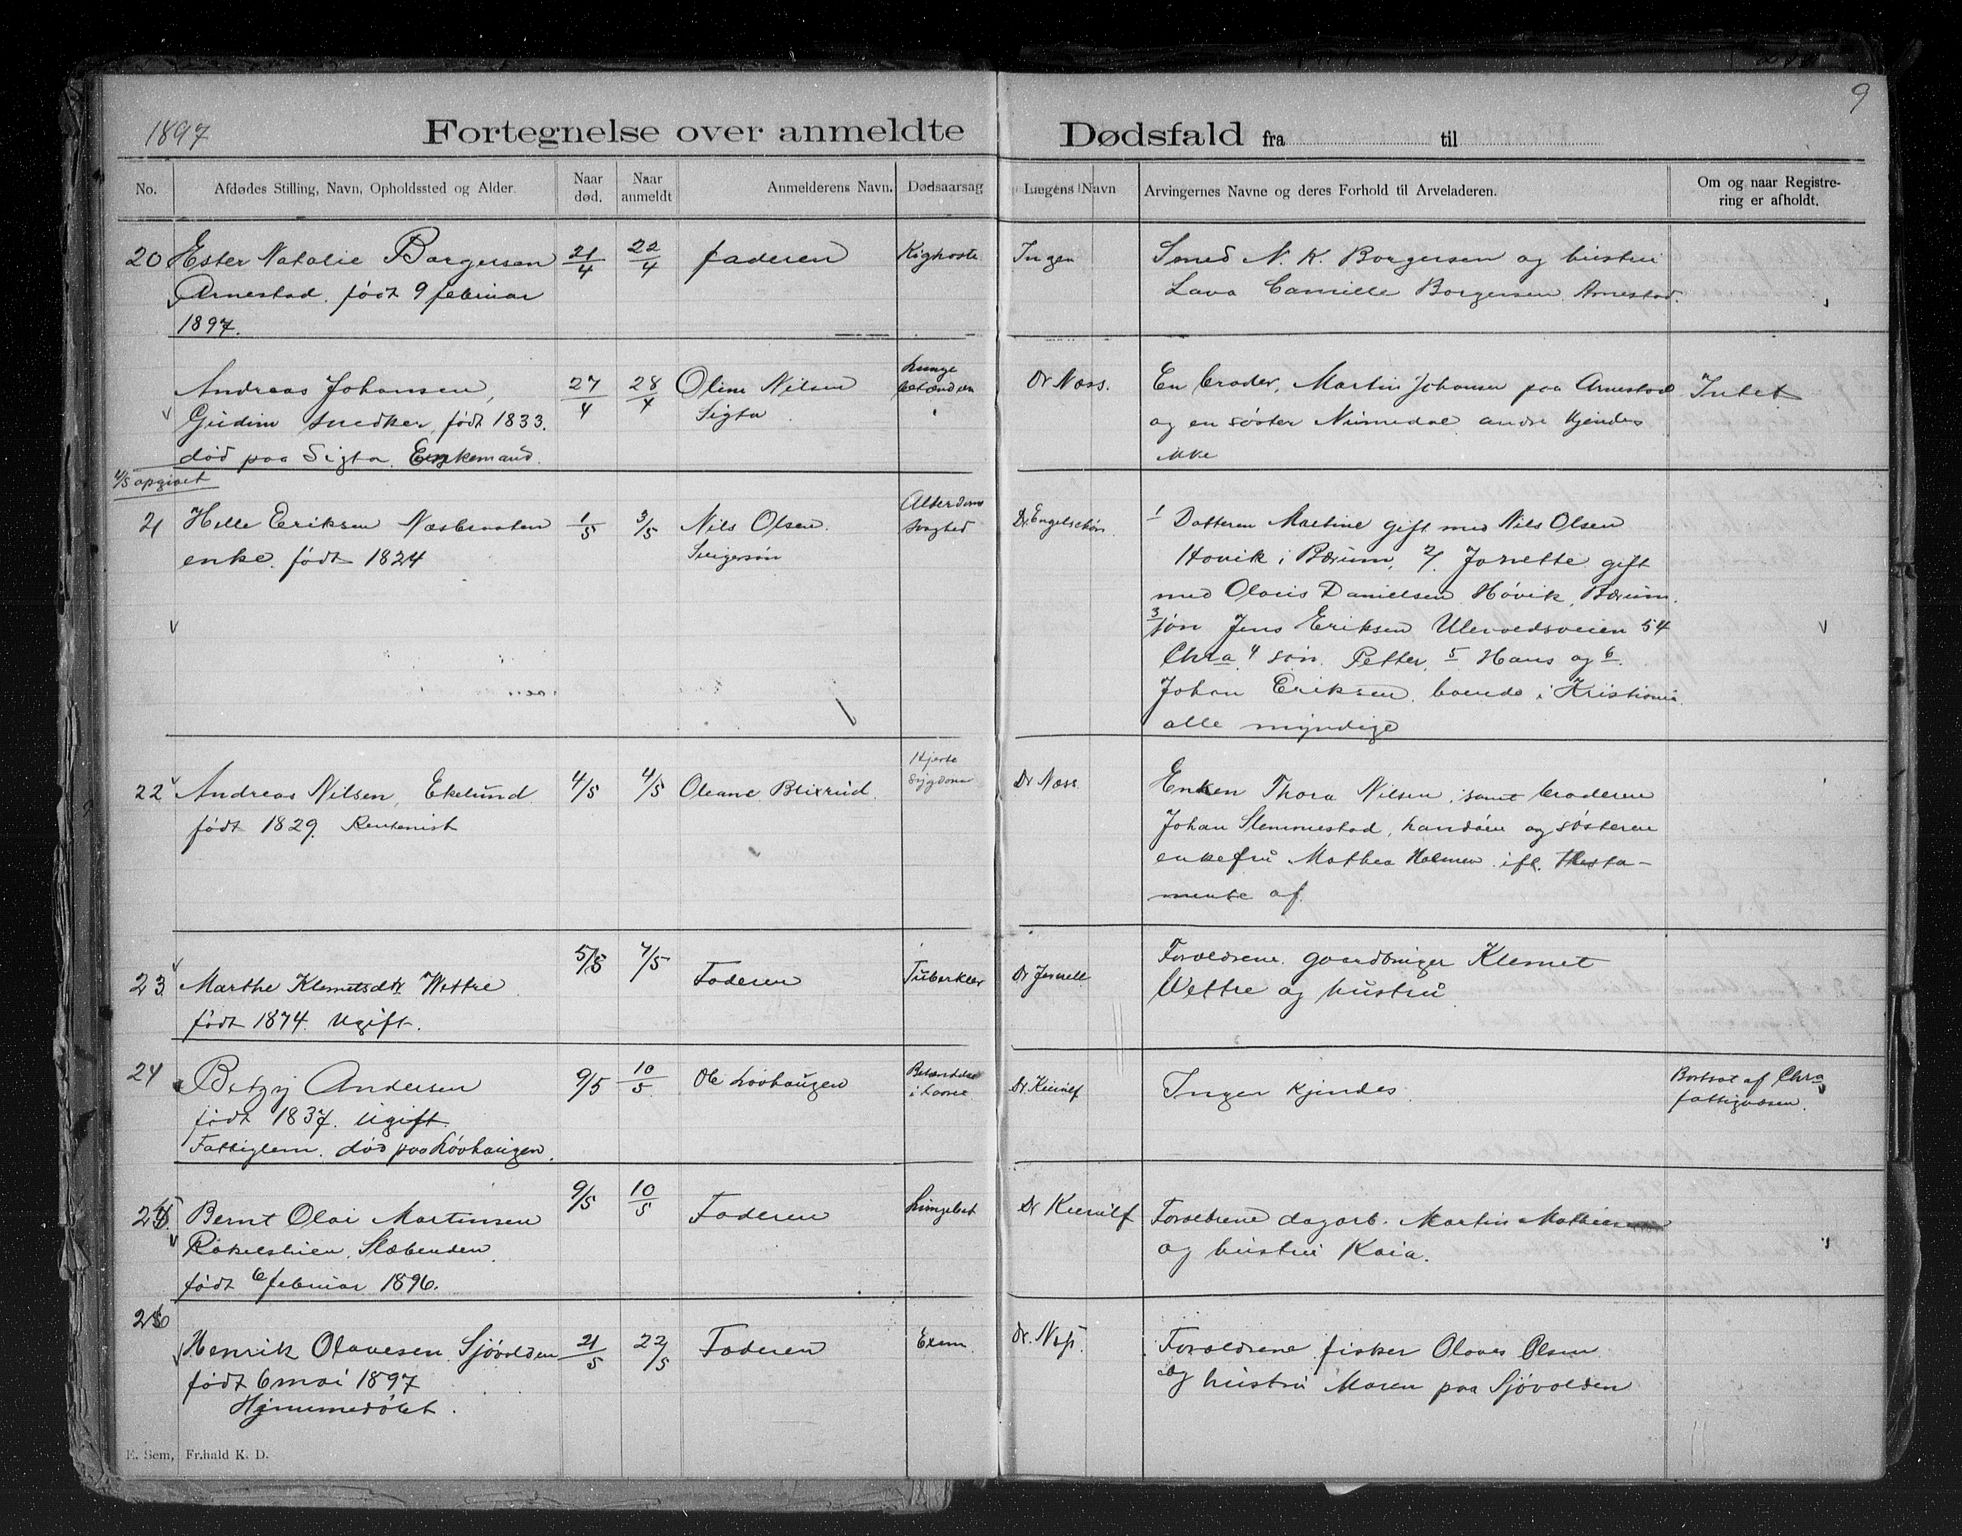 9
1897 Fortegnelse over anmeldte Dødsfald fra til
No. Afdødes Stilling, Navn, Opholdssted og Alder. Naar død. Naar anmeldt Anmelderens Navn. Dødsaarsag Lægens Navn Arvingernes Navne og deres Forhold til Arveladeren. Om og naar Registrering er afholdt.
20 Ester Natalie Borgersen 21/4 22/4 faderen Kighoste Ingen Smed N. K. Borgersen og hustru
Arnestad. født 9 februar Lava Camille Borgersen Arnestad.
1897.
Andreas Johansen, 27/4 28/4 Oline Nilsen Lunge Dr Næss. En broder, Martin Johansen paa Arnestad Intet
Gudim snedker, født 1833. Sigta betændelsen og en søster Numedal andre kjendes
død paa Sigta. Enkemand. ikke
4/5 opgivet
21 Helle Eriksen Næsbraaten 1/5 3/5 Nils Olsen Alderdoms Dr. Engelschiøn. 1 Datteren Martine gift med Nils Olsen
enke. født 1824 Svigersøn svaghed Høvik i Bærum, 2/. Jonette gift
med Olaus Danielsen Høvik, Bærum.
3/ søn Jens Eriksen Ulevoldsveien 54
Chra. 4 søn. Petter, 5 Hans og 6.
Johan Eriksen. boende i Kristiania
alle myndige
22 Andreas Nilsen, Ekelund 4/5 4/5 Oleane Blixrud. Hjerte Dr Næss Enken Thora Nilsen, samt broderen
født 1829. Rentenist sygdom Johan Slemmestad, handom og søsteren
enkefru Mathea Holmen ifl. testa-
mente af.
23 Marthe Klemetsdtr Wettre 5/5 7/5 Faderen Tuberkler Dr Jernell Forældrene gaardbruger Klemet
født 1874. Ugift. Wettre og hustru
24 Betzy Andersen 9/5 10/5 Ole Løvhaugen Betændelse Dr. Kierulf Ingen kjendes. Bortsat af Chra
født 1837. ugift. i fattigvæsen.
Fattiglem. død paa Løvhaugen.
25 Bernt Olai Martinsen 9/5 10/5 Faderen Lungebet Dr Kierulf Forældrene dagarb. Martin Mathiesen
Slæbenden. og hustru Kaia.
født 6 februar 1896.
26 Henrik Olavesen Sjøvolden 21/5 22/5 Faderen Exem. dr. Næss Forældrene fisker Olaves Olsen
født 6 mai 1897 og hustru Maren paa Sjøvolden
Hjemmedøbt.
E. Sem, Fr.hald K. D.